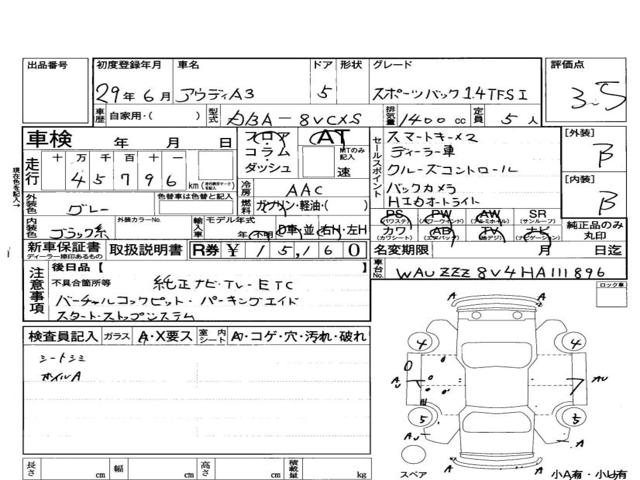 出品番号 初度登録年月 車名 ドア 形状 グレード 評価点
29年6月 アウディA3 5 スポーツバック1.4TFSI 3.5
車歴 自家用・( ) 型式 DBA-8VCXS 排気量 1400cc 定員 5人
車検 年 月 日 フロア・コラム・ダッシュ AT MTのみ記入 速
現在色を記入→
走行 十 万 千 百 十 一
45796 km
冷房 AAC
燃料 ガソリン・軽油・( )
セールスポイント
スマートキー×2
ディーラー車
クルーズコントロール
バックカメラ
HIDオートライト
[外装] B
[内装] B
外装色 グレー 色替車は色替と記入
内装色 ブラック系 外装カラーNo. 輸入車 モデル年式 年(不明) D車・並 右H・左H
PS AW SR
(パワステ) (パワーウインド) (アルミホイル) (サンルーフ)
カワ AB TV ナビ
(カワシート) (エアバック) (地デジ) (ナビゲーション)
純正品のみ丸印
新車保証書 取扱説明書 R券 ¥15,160
ディーラー捺印あるもの
名変期限 月 日
車台No. WAUZZZ8V4HA111896
注意事項
後日品( )
不具合箇所等 純正ナビ・TV・ETC
バーチャルコックピット・パーキングエイド
スタートストップシステム
ロック車
検査員記入 ガラス A・X要ス 室内シート A・コゲ・穴・汚れ・破れ
シートシミ
ホイルA
4 4
AU AU
5 5
スペア
小A有・小U有
長さ cm 幅 cm 高さ cm 積載量 kg